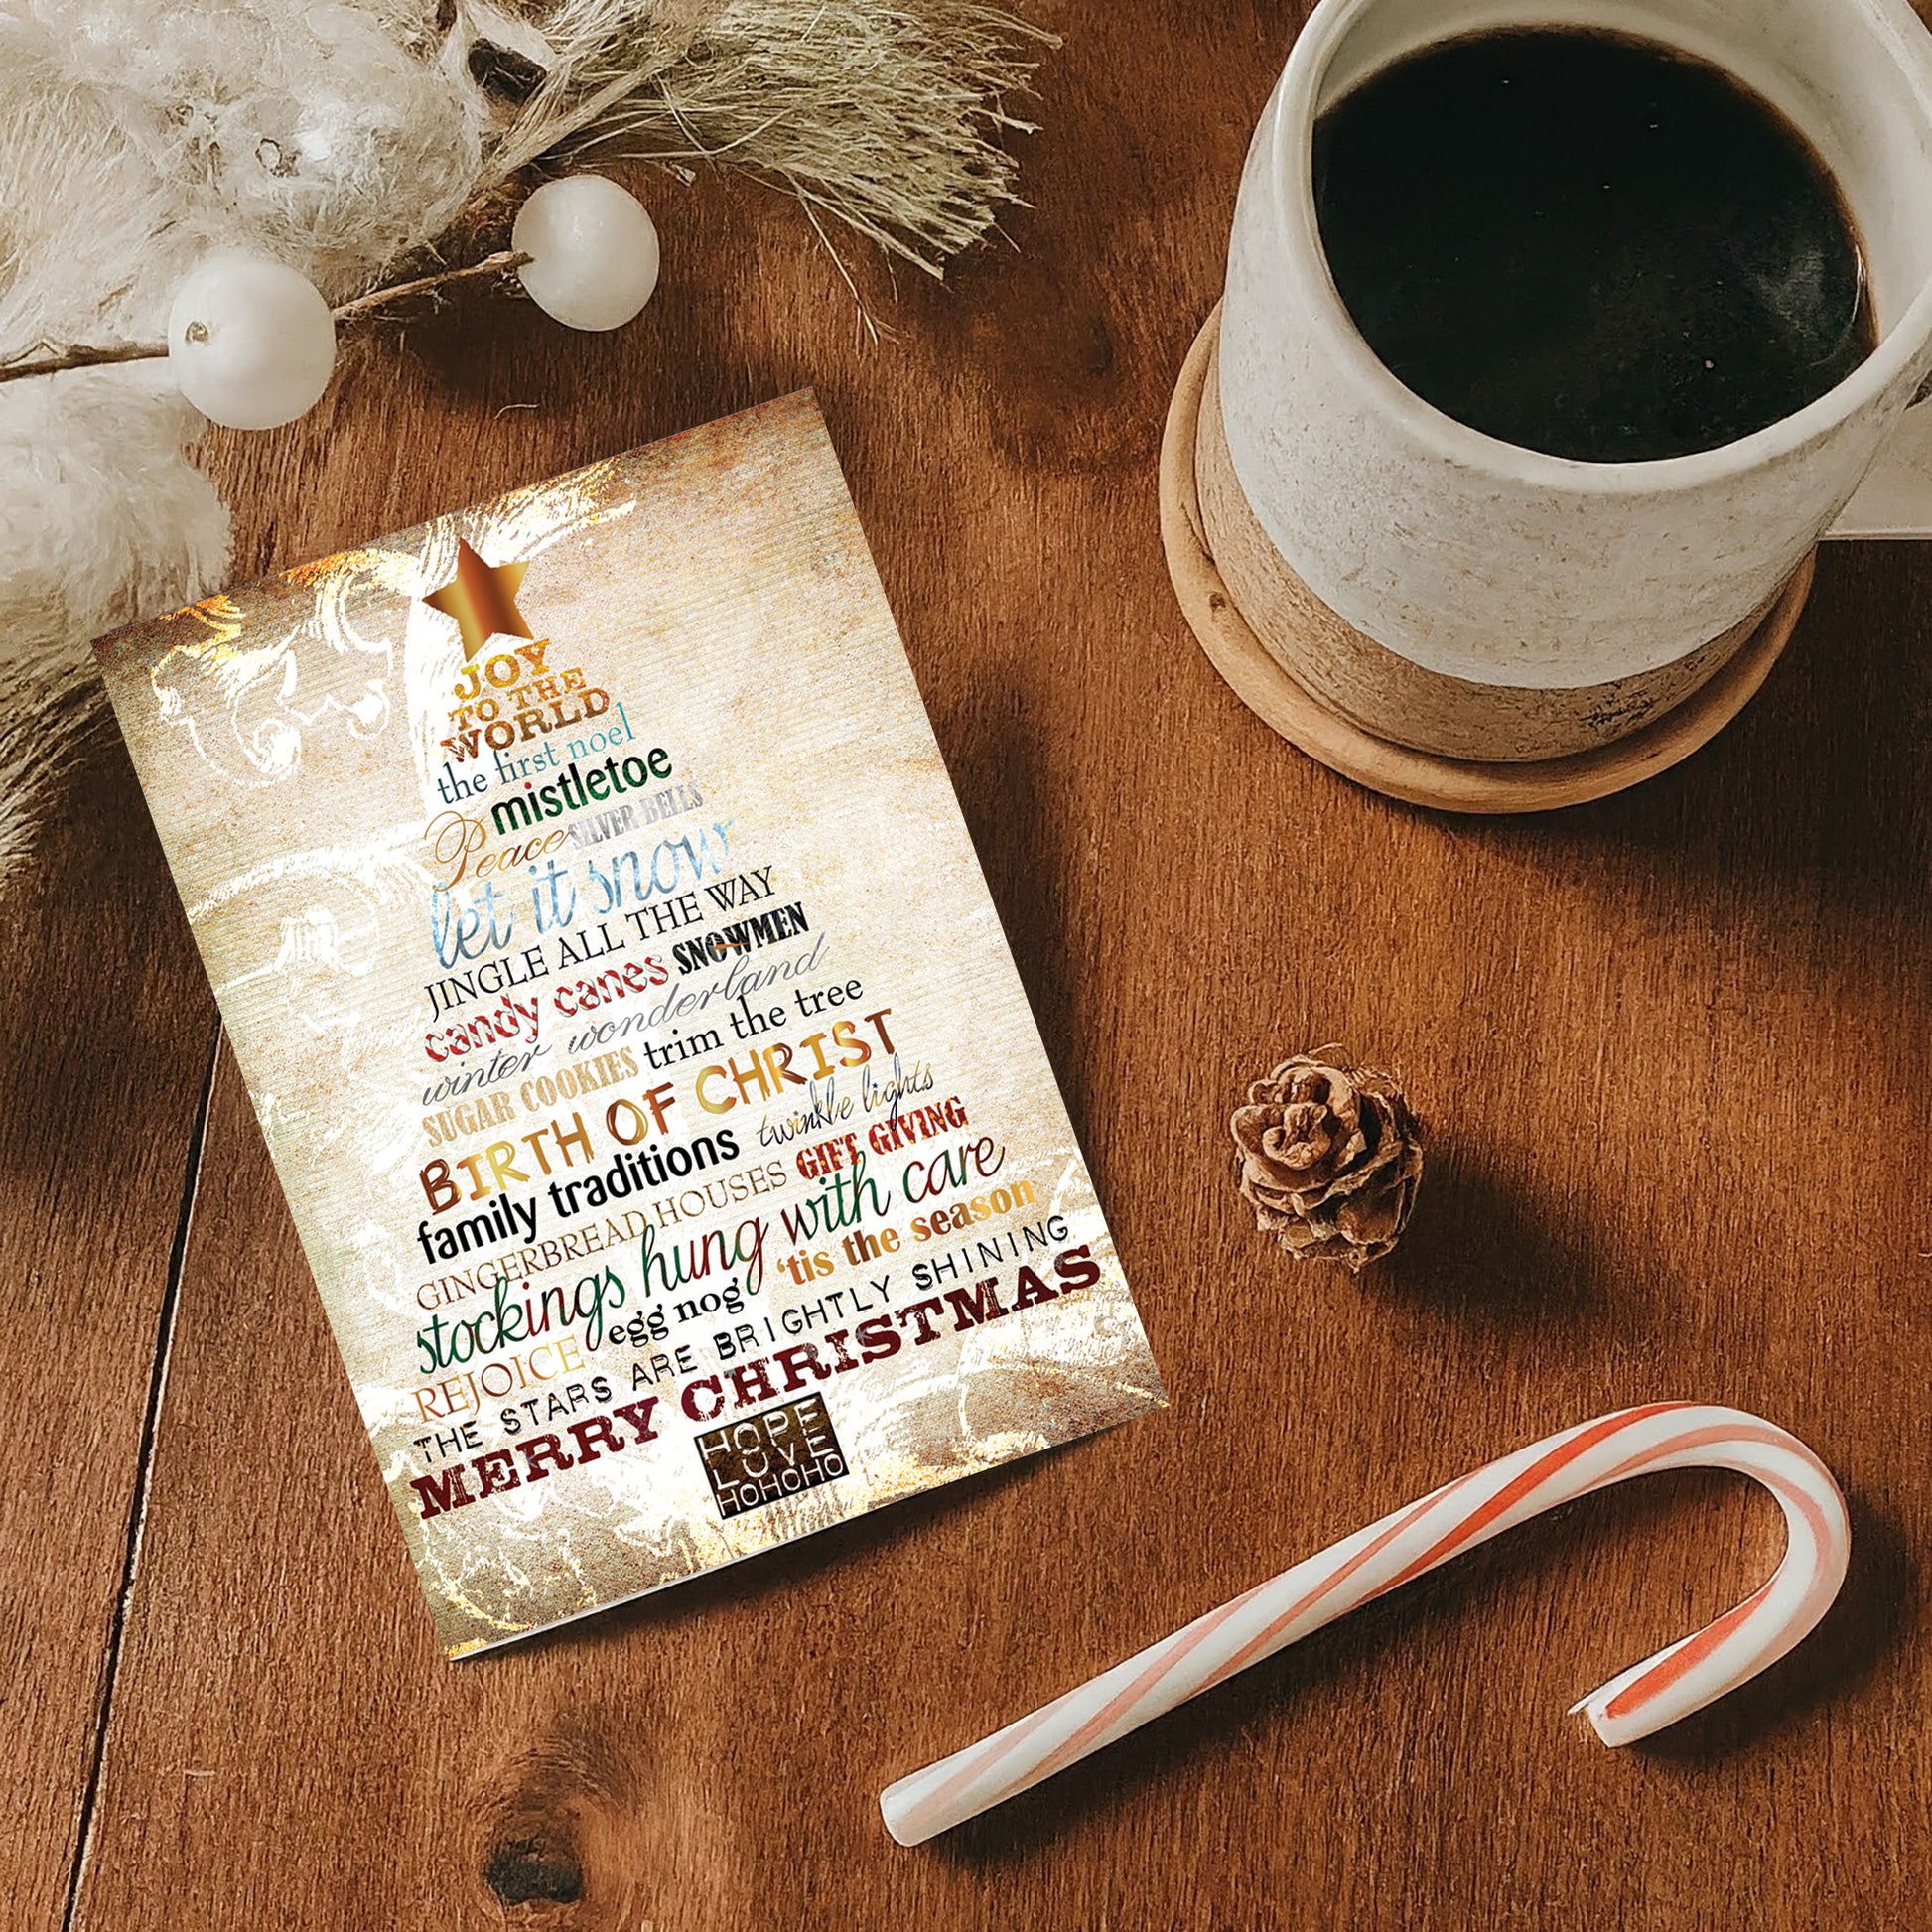 JOY
TO THE
WORLD
the first noel
mistletoe
Peace SILVER BELLS
let it snow
JINGLE ALL THE WAY
candy canes SNOWMEN
winter wonderland
SUGAR COOKIES trim the tree
BIRTH OF CHRIST
family traditions twinkle lights
GINGERBREAD HOUSES GIFT GIVING
stockings hung with care
REJOICE egg nog 'tis the season
THE STARS ARE BRIGHTLY SHINING
MERRY CHRISTMAS
HOPE
LOVE
HOHOHO